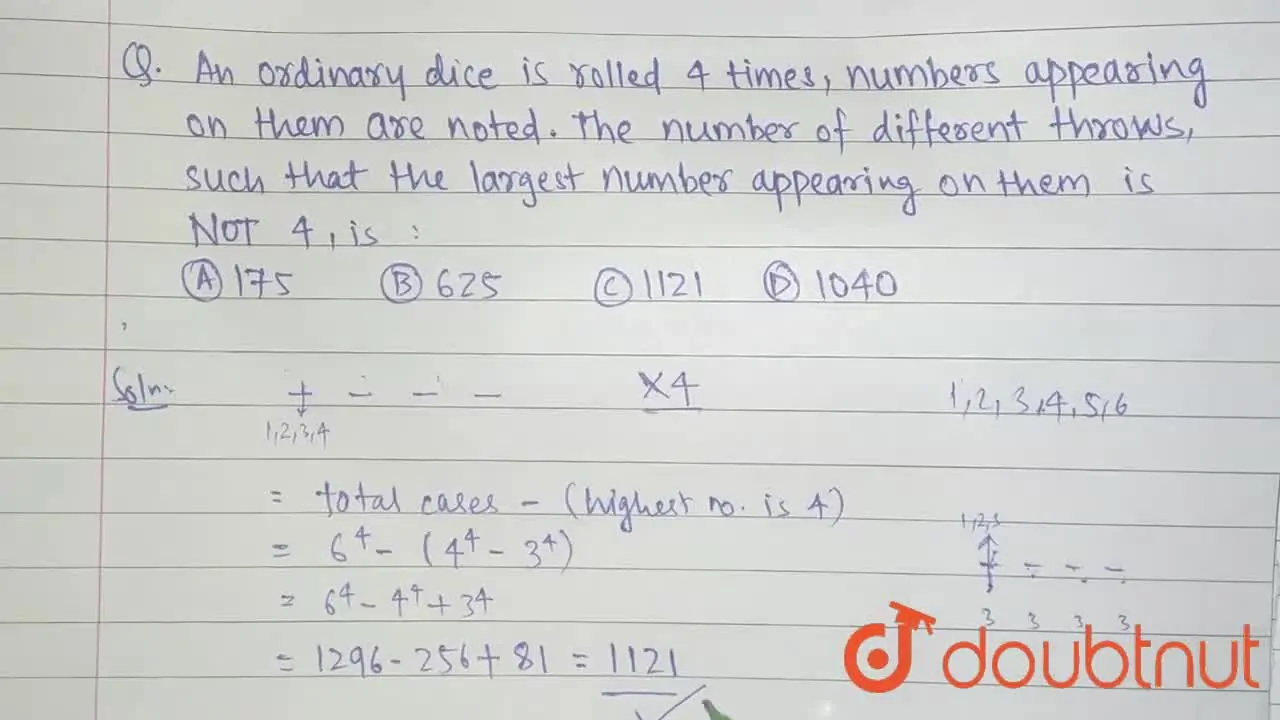 Q. An ordinary dice is rolled 4 times, numbers appearing
on them are noted. The number of different throws,
such that the largest number appearing on them is
NOT 4, is :
(A) 175 (B) 625 (C) 1121 (D) 1040
Soln:
×4
1,2,3,4,5,6
1,2,3,4
= total cases - (highest no. is 4)
= 6⁴ - (4⁴ - 3⁴)
= 6⁴ - 4⁴ + 3⁴
= 1296 - 256 + 81 = 1121
1,2,3
3 3 3 3
doubtnut